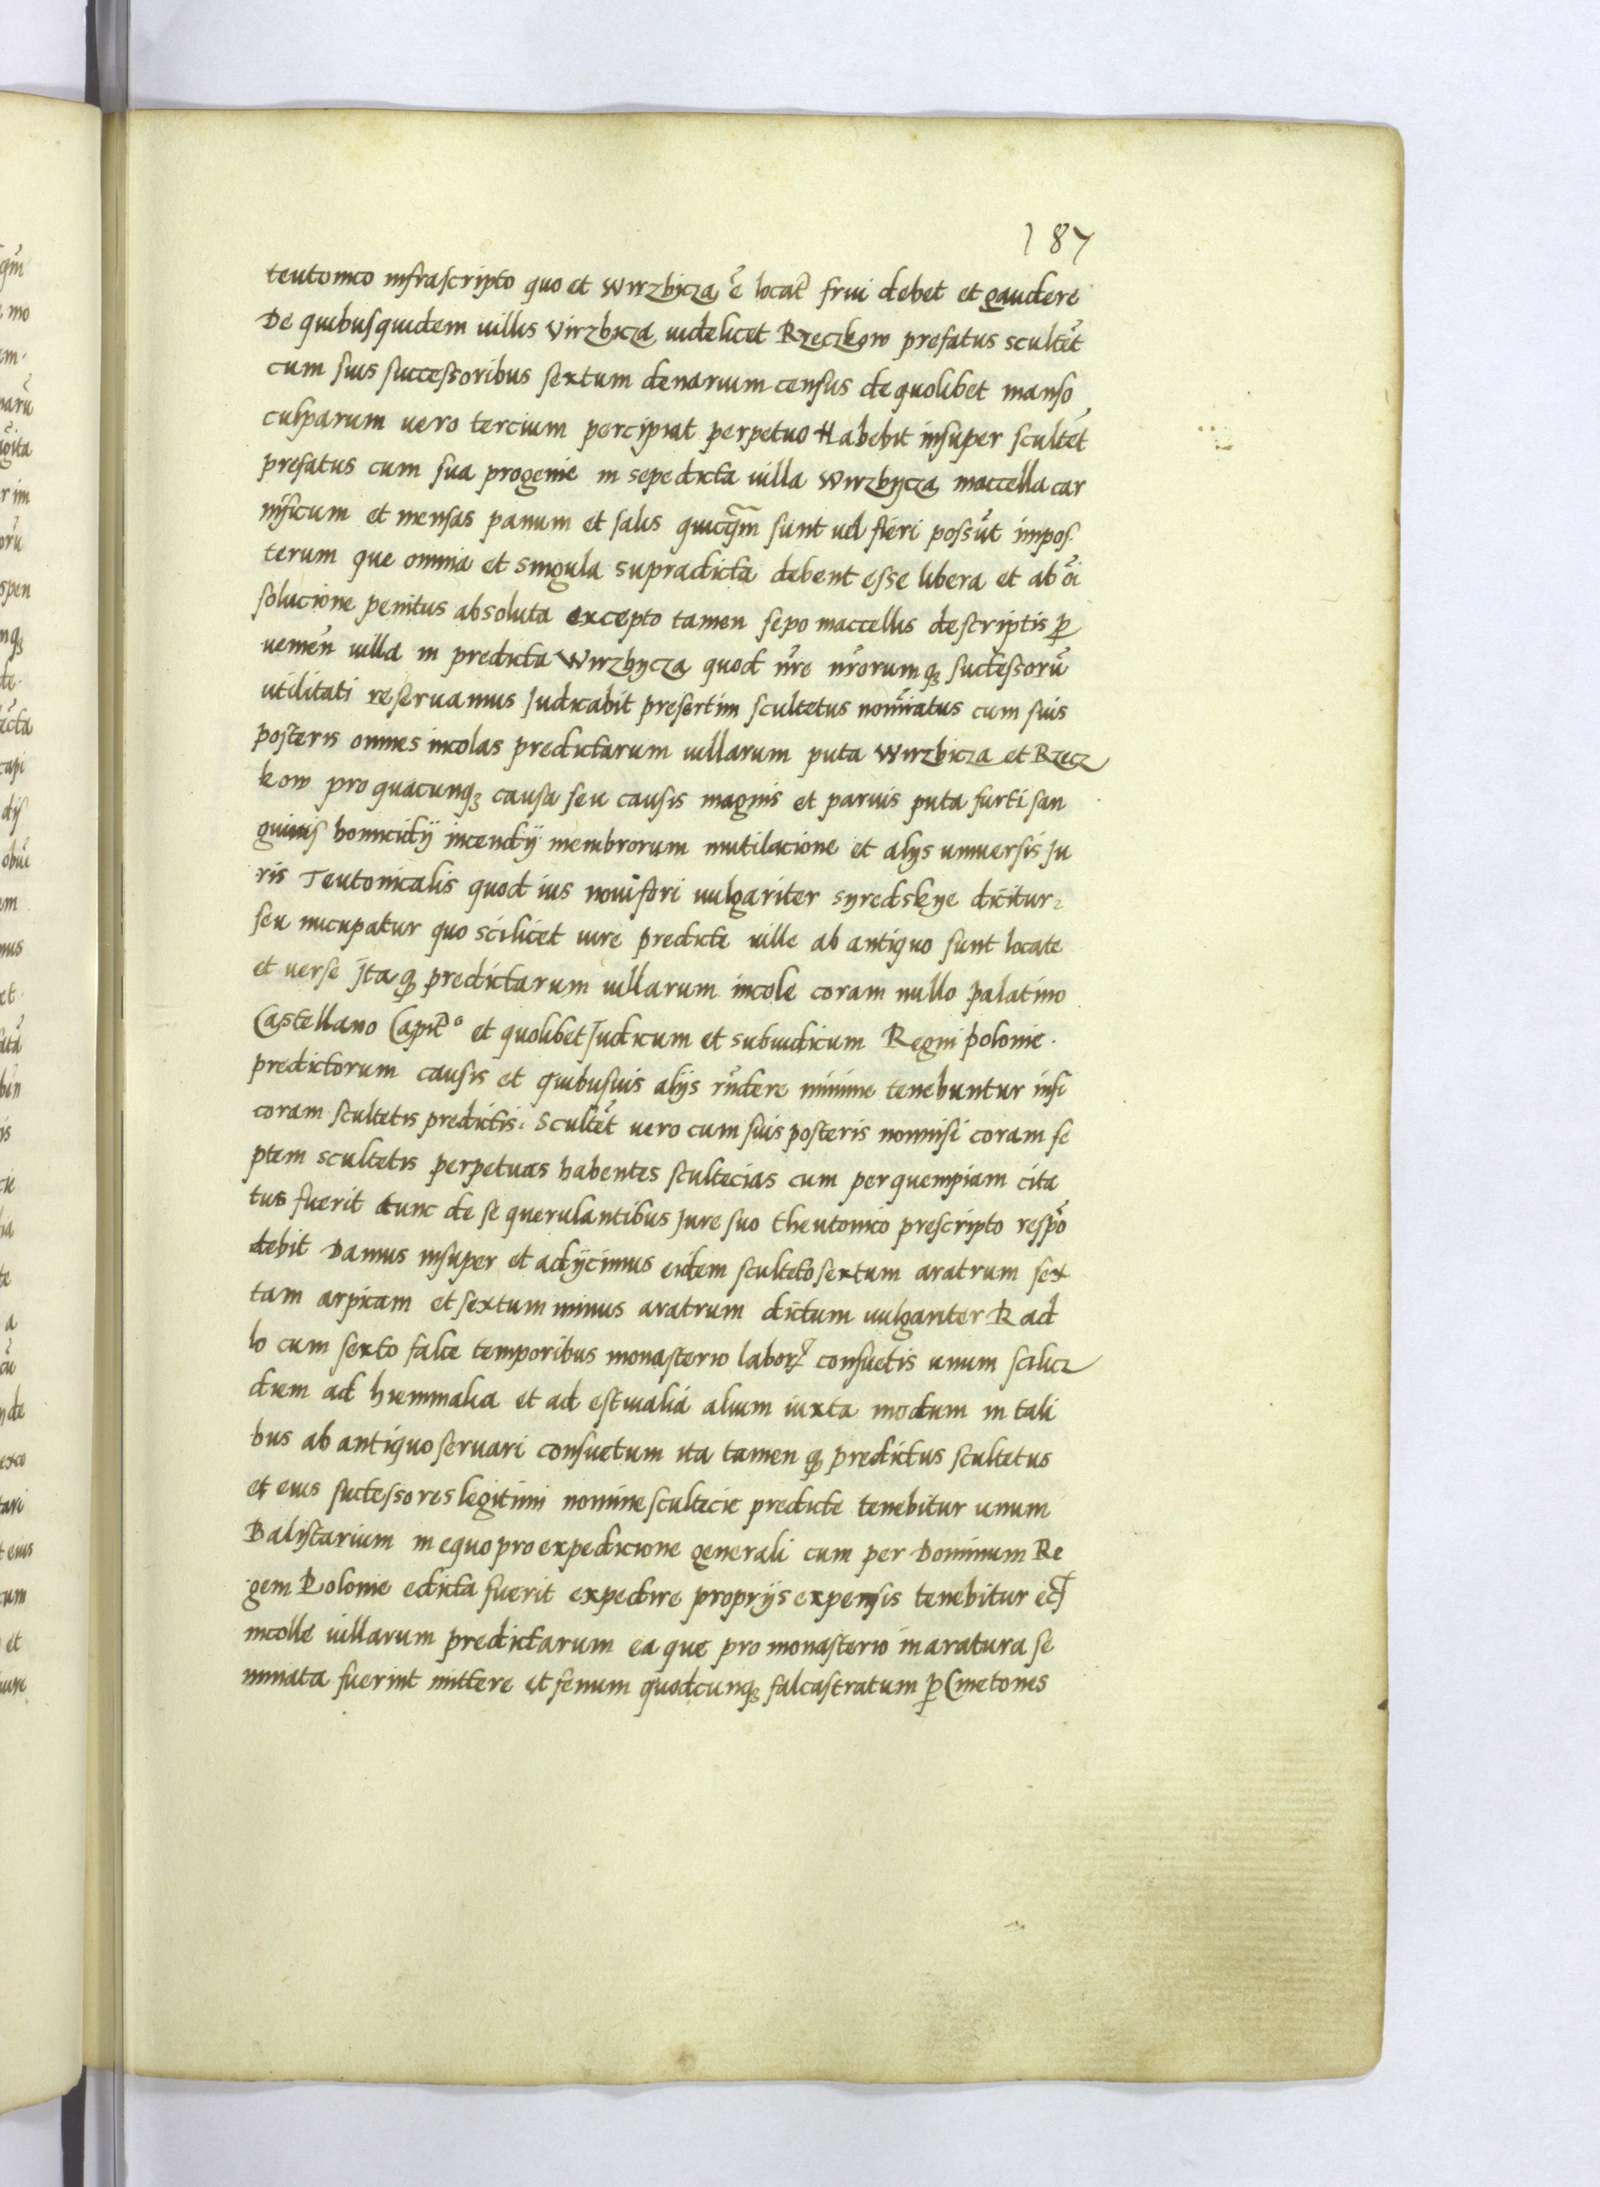 187
teutonico infrascripto quo et Wirzbicza ẽ locat̃ frui debet et gaudere
De quibusquidem uillis Virzbicza uidelicet Rzeczkow prefatus scultẽt
cum suis successoribus sextum denarium census de quolibet manso
culparum uero tercium percipiat perpetuo Habebit insuper scultẽt
prefatus cum sua progenie in sepedicta uilla Wirzbycza maccella car
nificum et mensas panum et salis quicq̃m sunt uel fieri possũt impos
terum que omnia et singula supradicta debent esse libera et ab õi
solucione penitus absoluta excepto tamen sepo maccellis descriptis ꝑ
uemeñ uilla in predicta Wirzbycza quod nr̃e nr̃orumq; successorũ
utilitati reseruamus Judicabit presertim scultetus nominatus cum suis
posteris omnes incolas predictarum uillarum puta Wirzbicza et Rzecz
kow pro quacunq; causa seu causis magnis et paruis puta furti san
guinis homicidij incendij membrorum mutilacione et alijs uniuersis Ju
ris Teutonicalis quod ius noui fori uulgariter syredskye dicitur
seu nucupatur quo scilicet iure predicte uille ab antiquo sunt locate
et uerse jta ꝙ predictarum uillarum incole coram nullo palatino
Castellano Capit̃o et quolibet Judicum et subiudicum Regni polonie.
predictorum causis et quibusuis alijs rñdere minime tenebuntur nisi
coram scultetis predictis. Scultẽt uero cum suis posteris nonnisi coram se
ptem scultetis perpetuas habentes scultecias cum per quempiam cita
tus fuerit tunc de se querulantibus jure suo theutonico prescripto respõ
debit Damus insuper et adijcimus eidem sculteto sextum aratrum sex
tam arpicam et sextum minus aratrum dictum uulgariter Rad
lo cum sexto falce temporibus monasterio labor̃ consuetis unum scilicz
diem ad hiemmalia et ad estiualia alium iuxta modum in tali
bus ab antiquo seruari consuetum ita tamen ꝙ predictus scultetus
et eius successores legitimi nomine scultecie predicte tenebitur unum
Balistarium in equo pro expedicione generali cum per Dominum Re
gem Polonie edicta fuerit expedire proprijs expensis tenebitur
incolle uillarum predictarum ea que pro monasterio in aratura se
minata fuerint mittere et fenum quodcunq; falcastratum ꝑ Cmetones